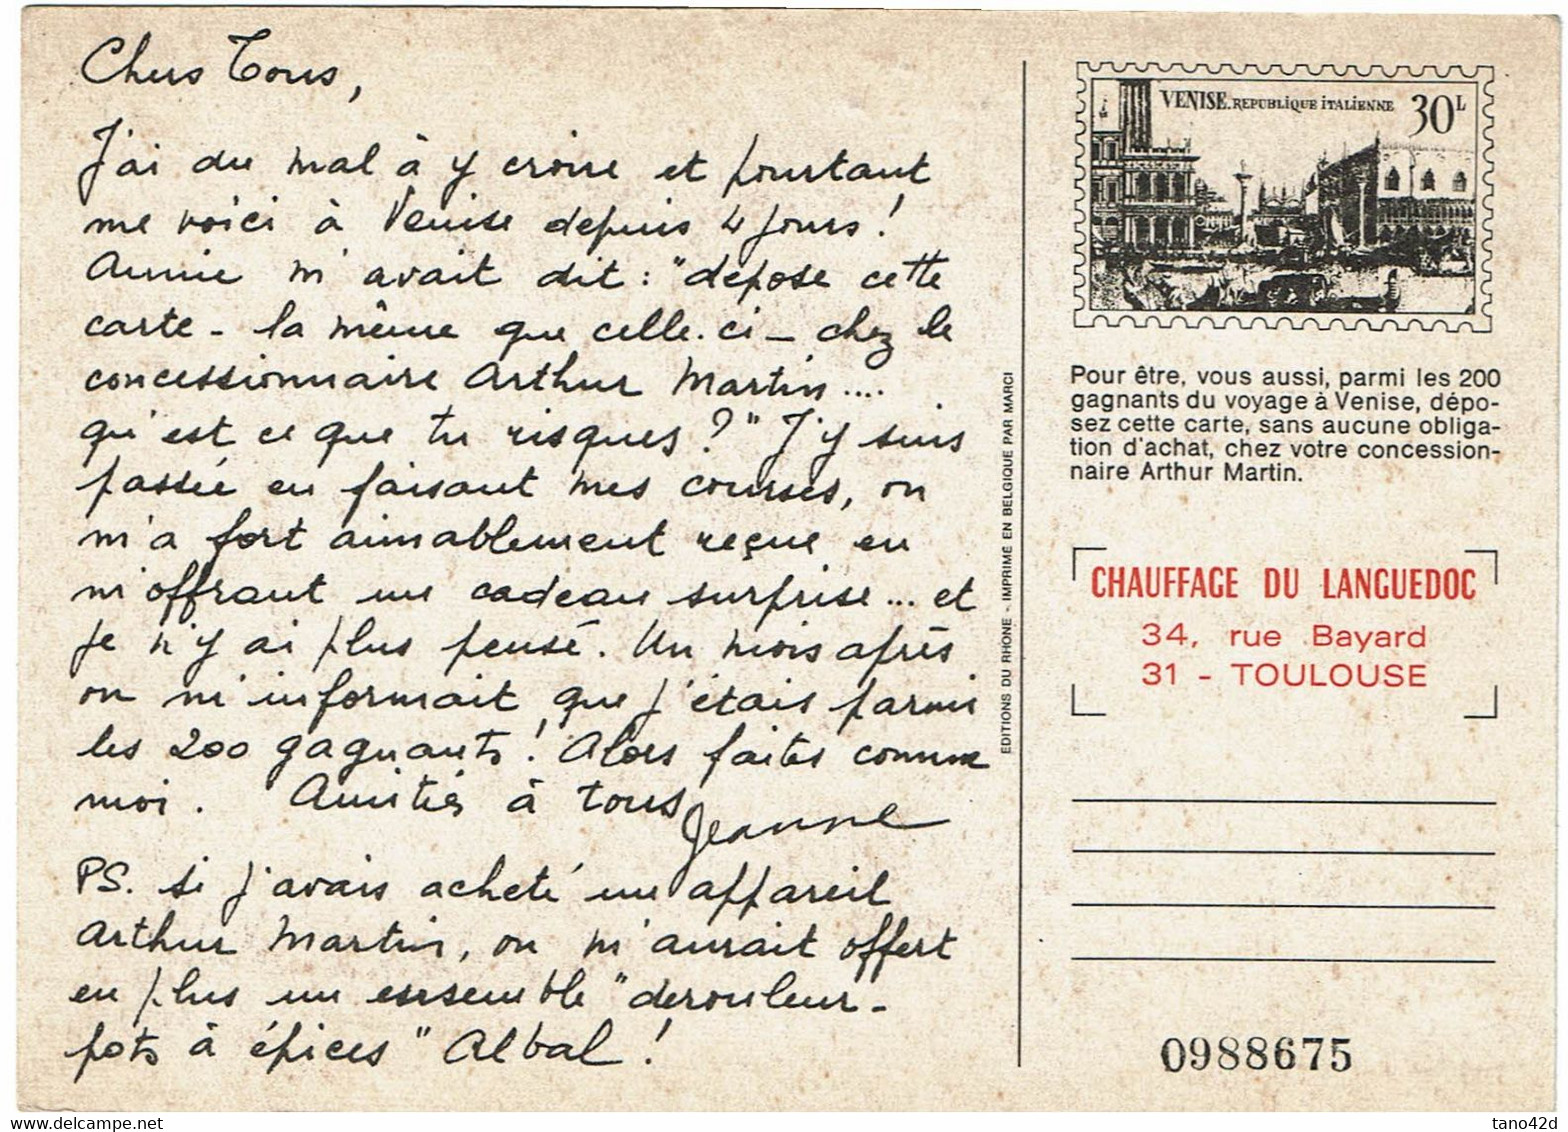 Chers Tous,
J'ai du mal à y croire et pourtant
me voici à Venise depuis 4 jours !
Annie m'avait dit : "dépose cette
carte - la même que celle-ci - chez le
concessionnaire Arthur Martin....
qu'est ce que tu risques ?" J'y suis
passée en faisant mes courses, on
m'a fort aimablement reçue en
m'offrant un cadeau surprise... et
je n'y ai plus pensé. Un mois après
on m'informait que j'étais parmi
les 200 gagnants ! Alors faites comme
moi. Amitiés à tous
Jeanne
PS. si j'avais acheté un appareil
Arthur Martin, on m'aurait offert
en plus un ensemble "derouleur-
pots à épices" Albal !
EDITIONS DU RHONE - IMPRIME EN BELGIQUE PAR MARCI
VENISE. REPUBLIQUE ITALIENNE 30L
Pour être, vous aussi, parmi les 200
gagnants du voyage à Venise, dépo-
sez cette carte, sans aucune obliga-
tion d'achat, chez votre concession-
naire Arthur Martin.
CHAUFFAGE DU LANGUEDOC
34, rue Bayard
31 - TOULOUSE
0988675
www.delcampe.net
tano42d